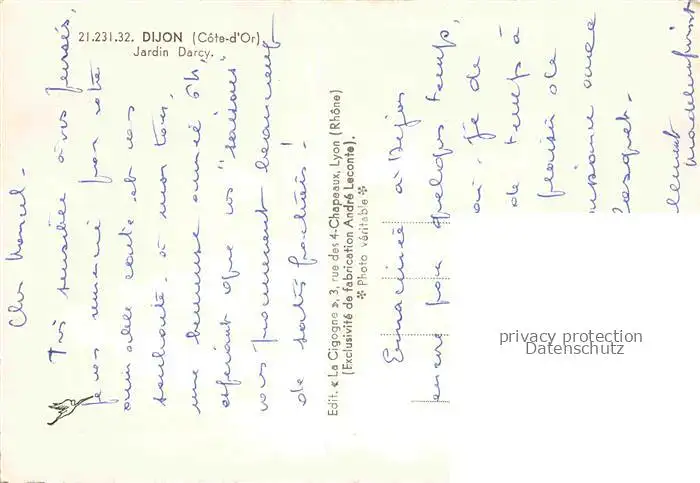 21.231.32. DIJON (Côte-d'Or)
Jardin Darcy.
Cher Marcel -
Très sensible à vos pensées,
je vous remercie pour votre
aimable carte et vos
souhaits. à mon tour,
une heureuse année 64,
espérant que vos "saisons"
vous procureront beaucoup
de satisfactions!
Edit. « La Cigogne », 3, rue des 4-Chapeaux, Lyon (Rhône)
(Exclusivité de fabrication André Leconte).
✲ Photo véritable ✲
Enracinée à Dijon
encore pour quelques temps,
ai. je de
de temps à
plaisir de
année
Madeleine
privacy protection
Datenschutz